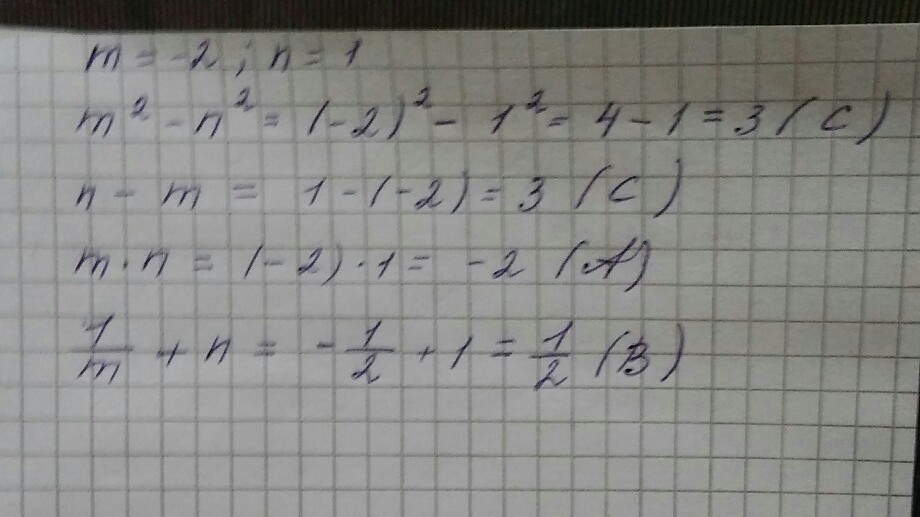 m = -2 ; n = 1
m² - n² = (-2)² - 1² = 4 - 1 = 3 (C)
n - m = 1 - (-2) = 3 (C)
m · n = (-2) · 1 = -2 (A)
1/m + n = -1/2 + 1 = 1/2 (B)